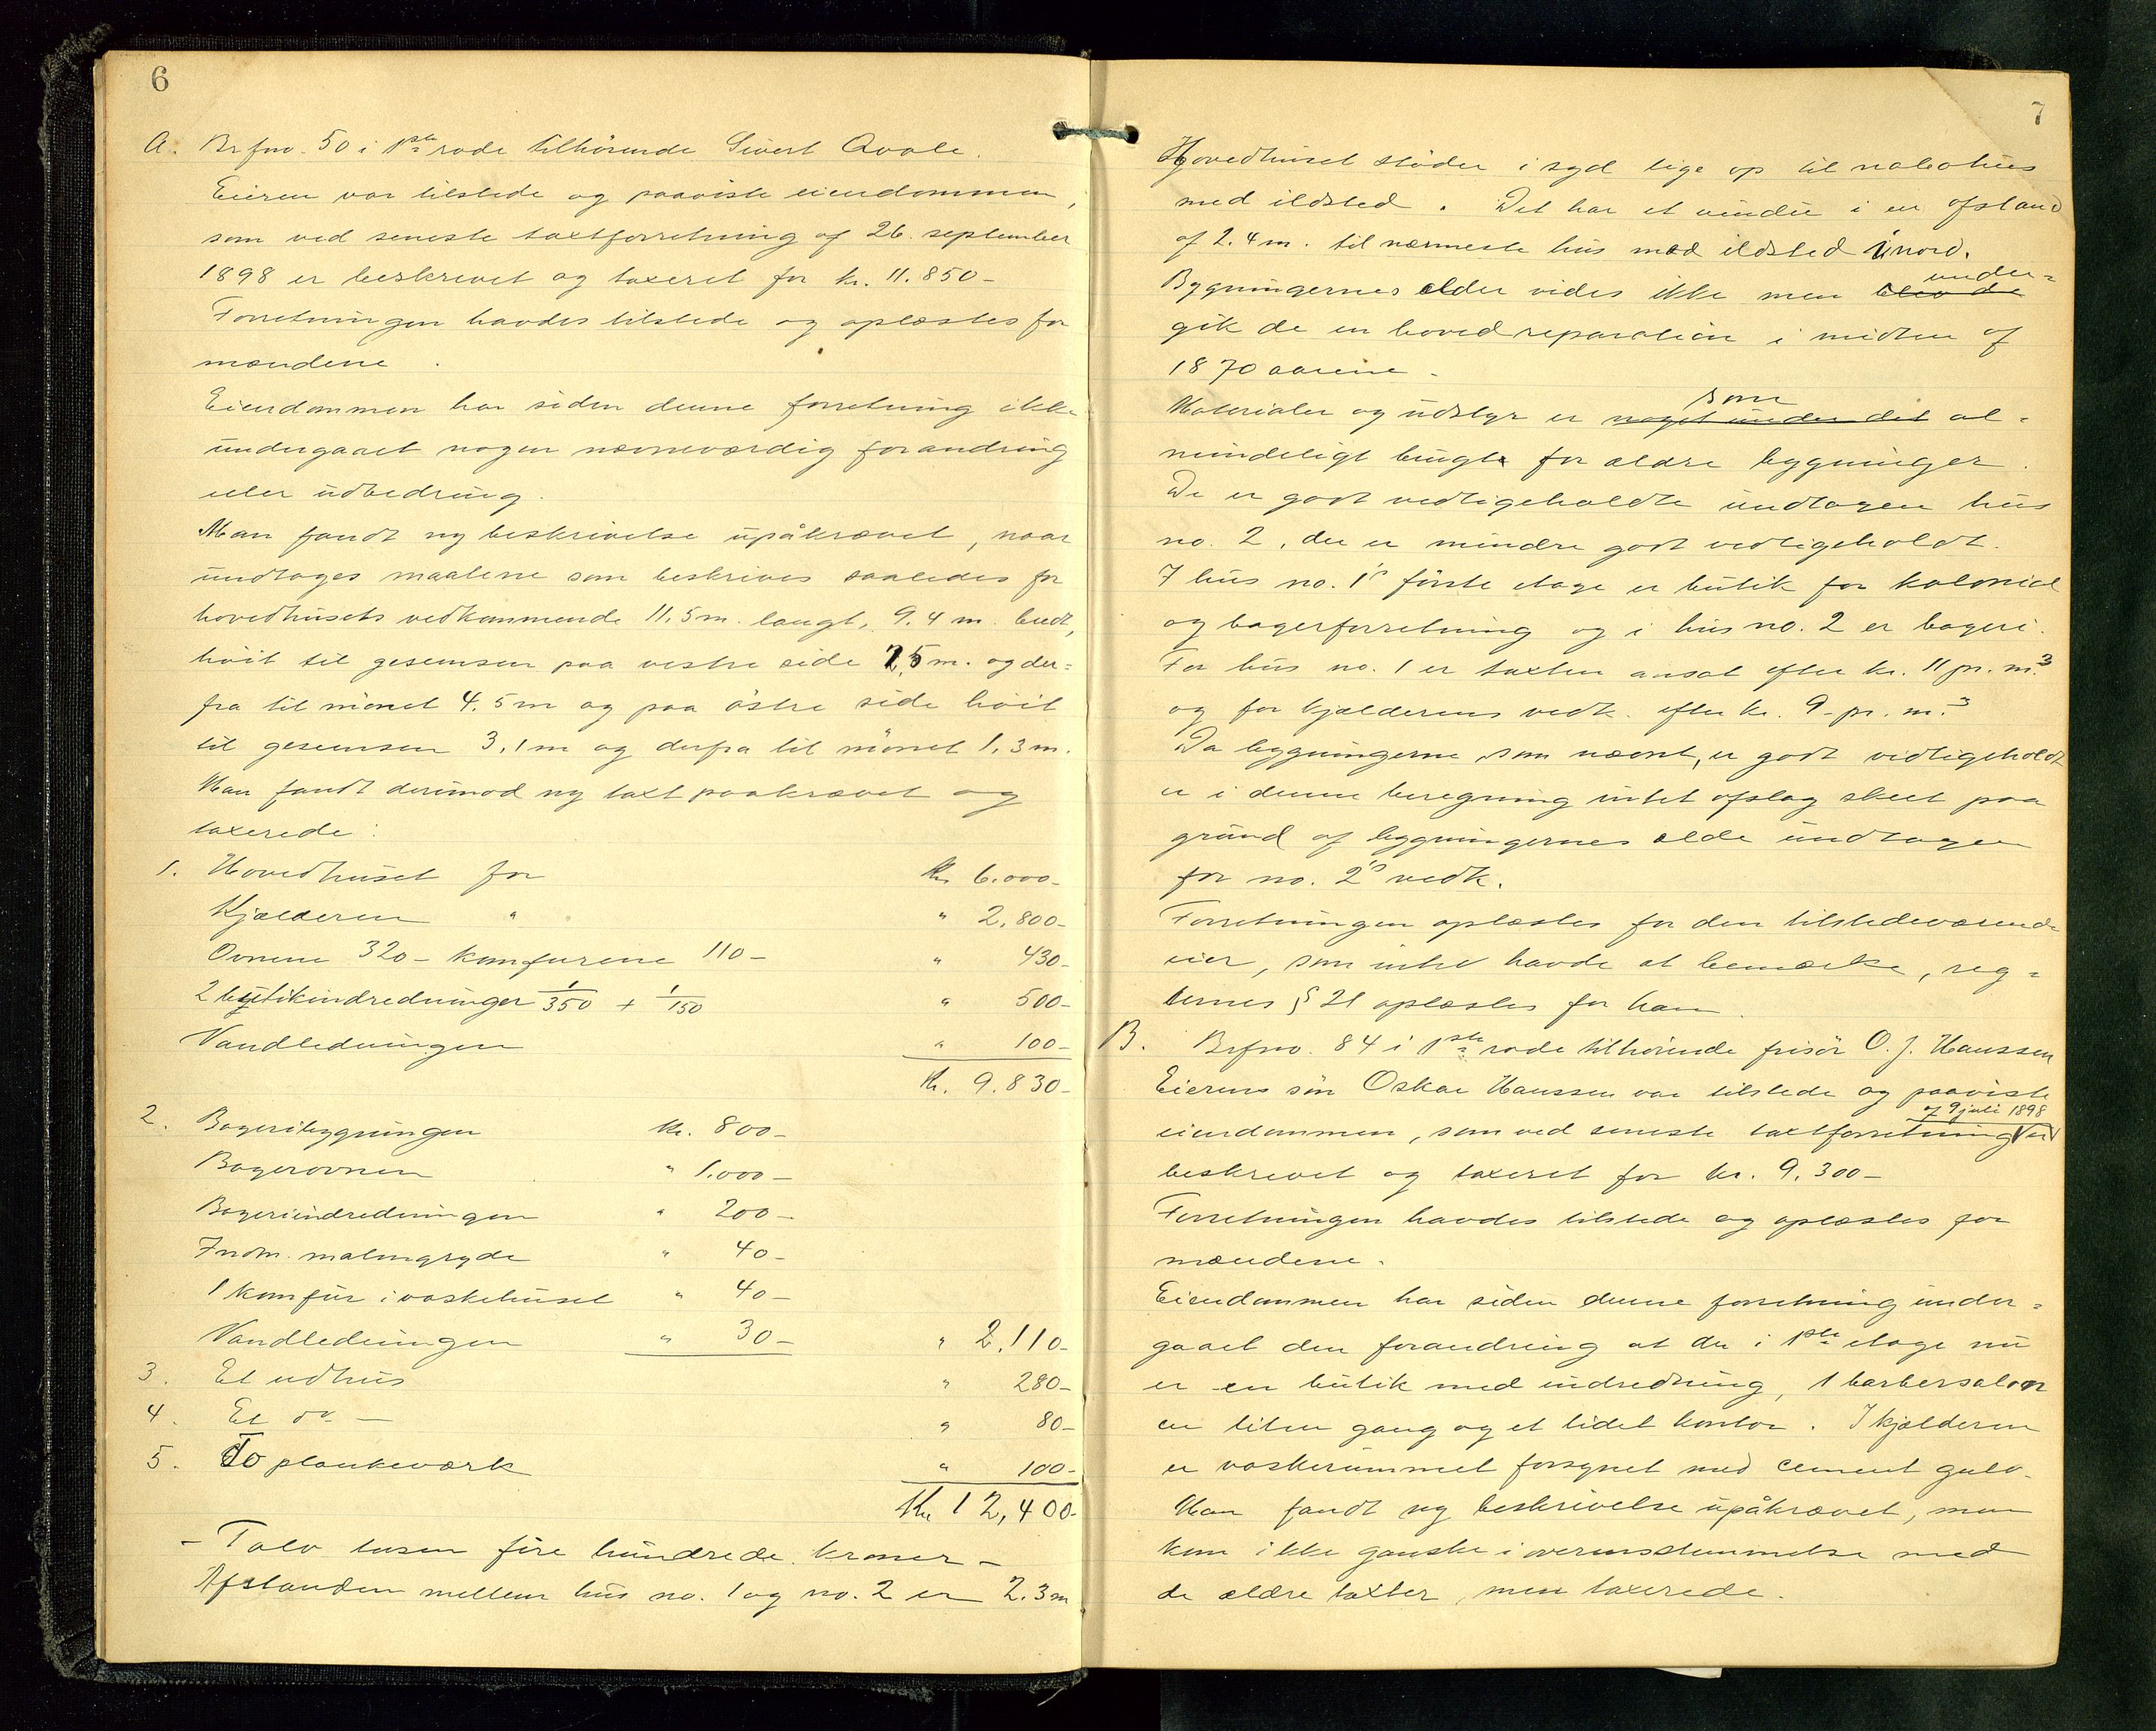 6
A. Brfno. 50 i 1ste rode tilhörende Sivert Qvale.
Eieren var tilstede og paaviste eiendommen,
som ved seneste taxtforretning af 26. september
1898 er beskrevet og taxeret for kr. 11.850-
Forretningen havdes tilstede og oplæstes for
mændene.
Eiendommen har siden denne forretning ikke
undergaaet nogen nævneværdig forandring
eller udbedring.
Man fandt ny beskrivelse upåkrævet, naar
undtages maalene som beskrives saaledes for
hovedhusets vedkommende 11,5 m. langt, 9.4 m. bredt,
höit til gesemsen paa vestre side 2,5 m. og der=
fra til mönet 4.5 m og paa östre side höit
til gesemsen 3,1 m og derfra til mönet 1,3 m.
Man fandt derimod ny taxt paakrævet og
taxerede:
1. Hovedhuset for Kr. 6.000-
Kjælderen " " 2,800-
Ovnene 320- komfurene 110- " 430-
2 butikindredninger 1/350 + 1/150 " 500-
Vandledningen " 100-
Kr. 9.830-
2. Bageribygningen kr. 800-
Bagerovnen " 1.000-
Bageriindredningen " 200-
Indm. malmgryde " 40-
1 komfür i vaskehuset " 40-
Vandledningen " 30- " 2.110-
3. Et udhus " 280-
4. Et do - " 80-
5. To plankeværk " 100-
Kr 12,400-
- Tolv tusen fire hundrede kroner -
Afstanden mellem hus no. 1 og no. 2 er 2.3 m
7
Hovedhuset stöder i syd lige op til nabohus
med ildsted. Det har et vindu i en afstand
af 2.4 m. til nærmeste hus med ildsted i nord.
Bygningernes alder vides ikke men blev de under=
gik de en hovedreparation i midten af
1870 aarene.
Materialer og udstyr er noget under det som al=
mindeligt brugt for ældre bygninger.
De er godt vedligeholdte undtagen hus
no. 2, der er mindre godt vedligeholdt.
I hus no. 1's förste etage er butik for kolonial
og bagerforretning og i hus no. 2 er bageri.
For hus no. 1 er taxten ansat efter kr. 11 pr. m.3
og for kjælderens vedk. efter kr. 9- pr. m.3
Da bygningerne, som nævnt, er godt vedligeholdt
er i denne beregning intet afslag skeet paa
grund af bygningernes ælde undtagen
for no. 2's vedk.
Forretningen oplæstes for den tilstedeværende
eier, som intet havde at bemærke, reg=
lernes § 21 oplæstes for ham.
B. Brfno. 84 i 1ste rode tilhörende frisör O. J. Hanssen
Eierens sön Oskar Hanssen var tilstede og paaviste
eiendommen, som ved seneste taxtforretning af 9 juli 1898 er
beskrevet og taxeret for kr. 9,300-
Forretningen havdes tilstede og oplæstes for
mændene.
Eiendommen har siden denne forretning under=
gaaet den forandring at der i 1ste etage nu
er en butik med indredning, 1 barbersalon
en liten gang og et lidet kontor. I kjælderen
er vaskerummet forsynet med cement gulv.
Man fandt ny beskrivelse upåkrævet, men
kom ikke ganske i overensstemmelse med
de ældre taxter, men taxerede.